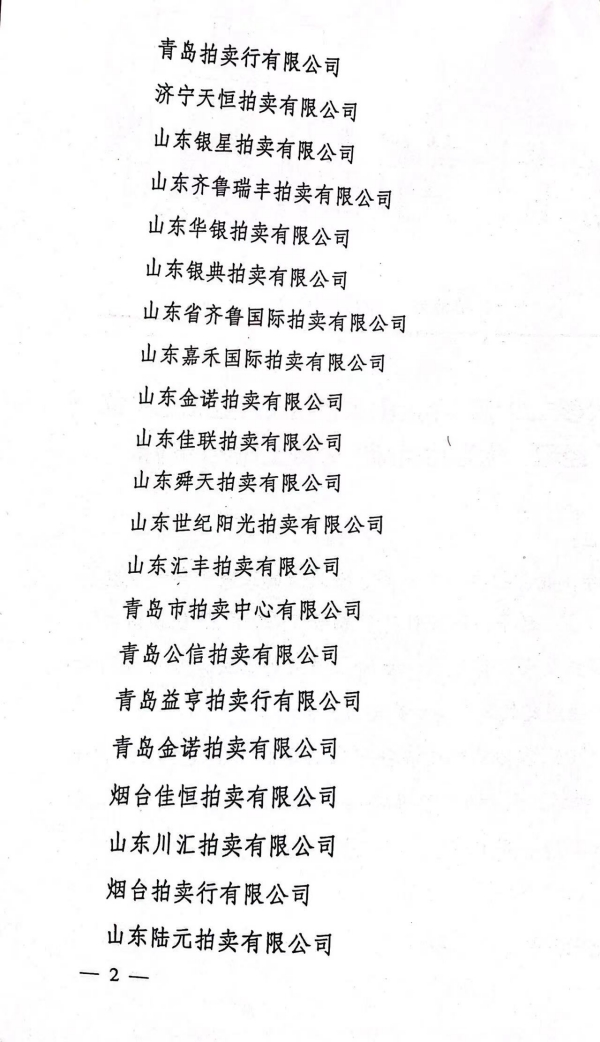 青岛拍卖行有限公司
济宁天恒拍卖有限公司
山东银星拍卖有限公司
山东齐鲁瑞丰拍卖有限公司
山东华银拍卖有限公司
山东银典拍卖有限公司
山东省齐鲁国际拍卖有限公司
山东嘉禾国际拍卖有限公司
山东金诺拍卖有限公司
山东佳联拍卖有限公司
山东舜天拍卖有限公司
山东世纪阳光拍卖有限公司
山东汇丰拍卖有限公司
青岛市拍卖中心有限公司
青岛公信拍卖有限公司
青岛益亨拍卖行有限公司
青岛金诺拍卖有限公司
烟台佳恒拍卖有限公司
山东川汇拍卖有限公司
烟台拍卖行有限公司
山东陆元拍卖有限公司
— 2 —